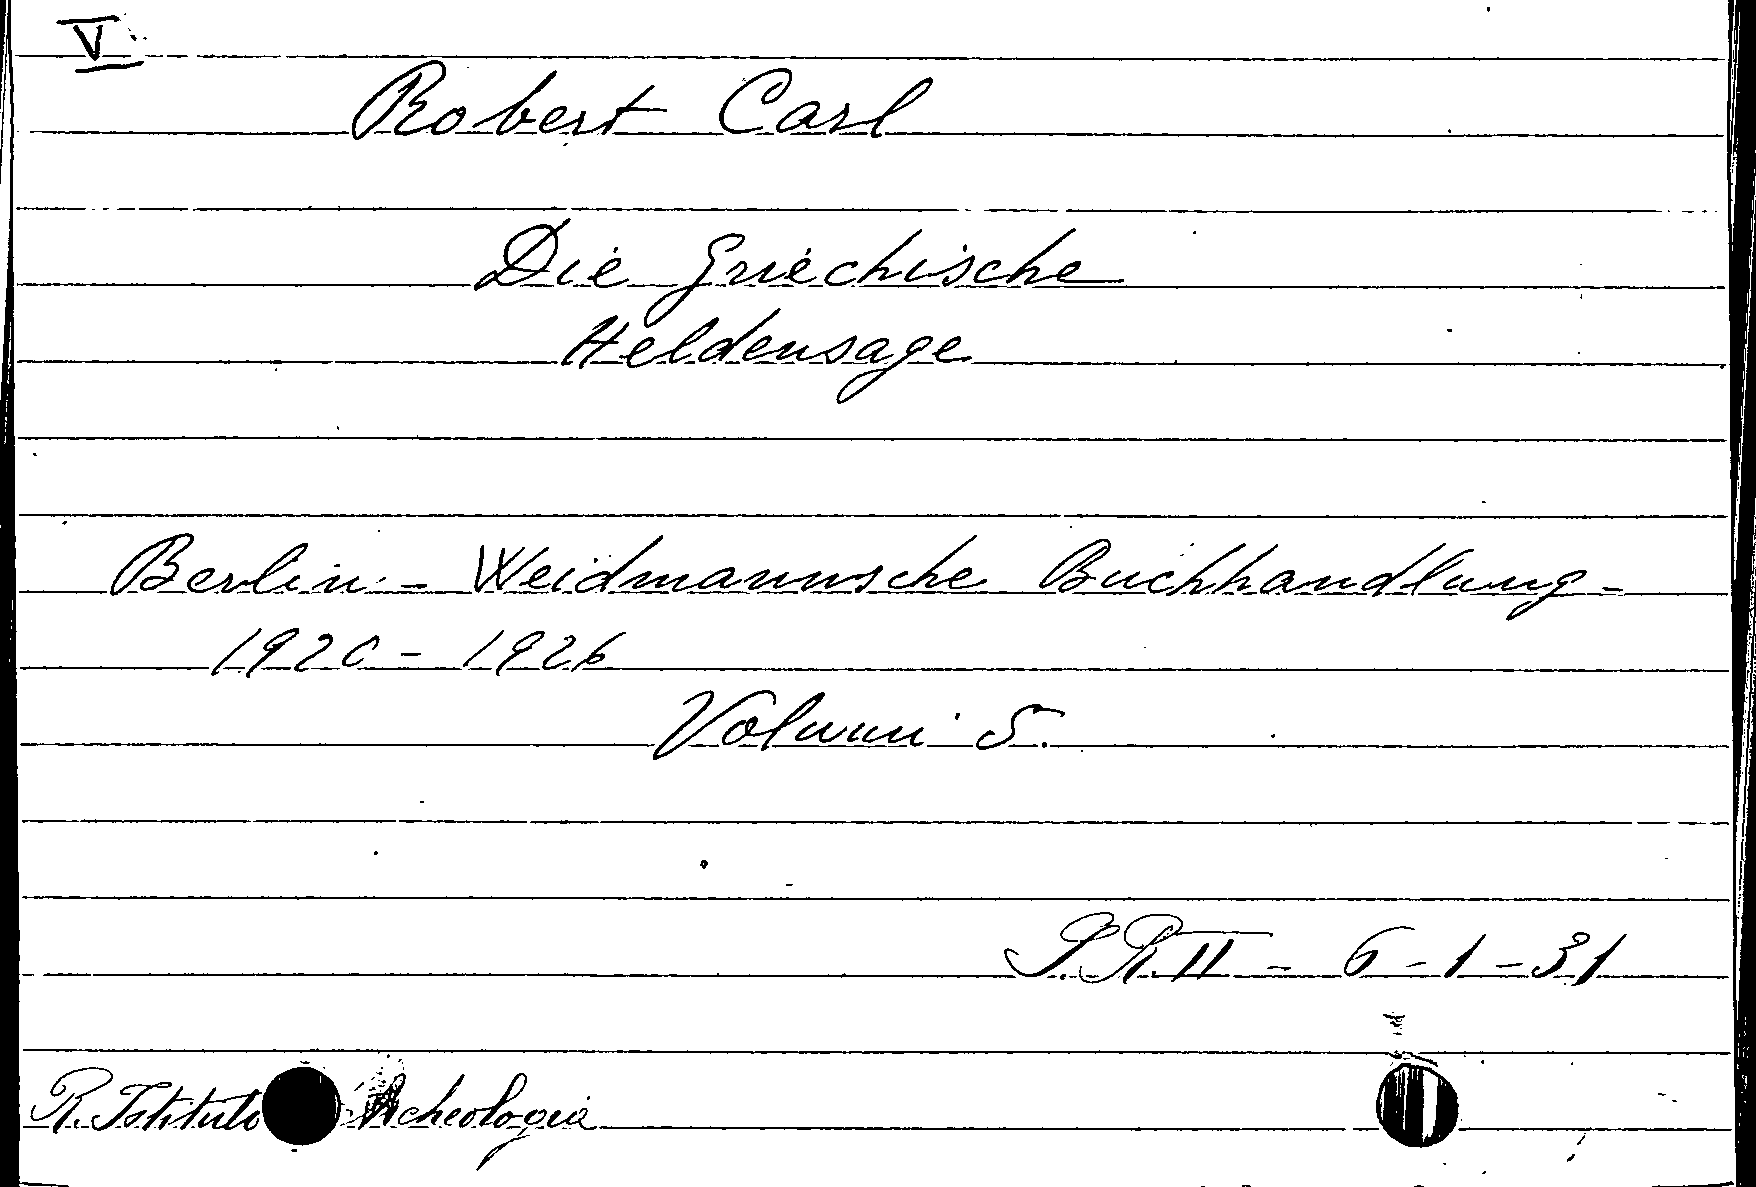 V
Robert Carl
Die Griechische
Heldensage
Berlin - Weidmannsche Buchhandlung -
1920 - 1926
Volumi 5.
S.R.II - 6 - 1 - 31
R. Istituto Archeologia